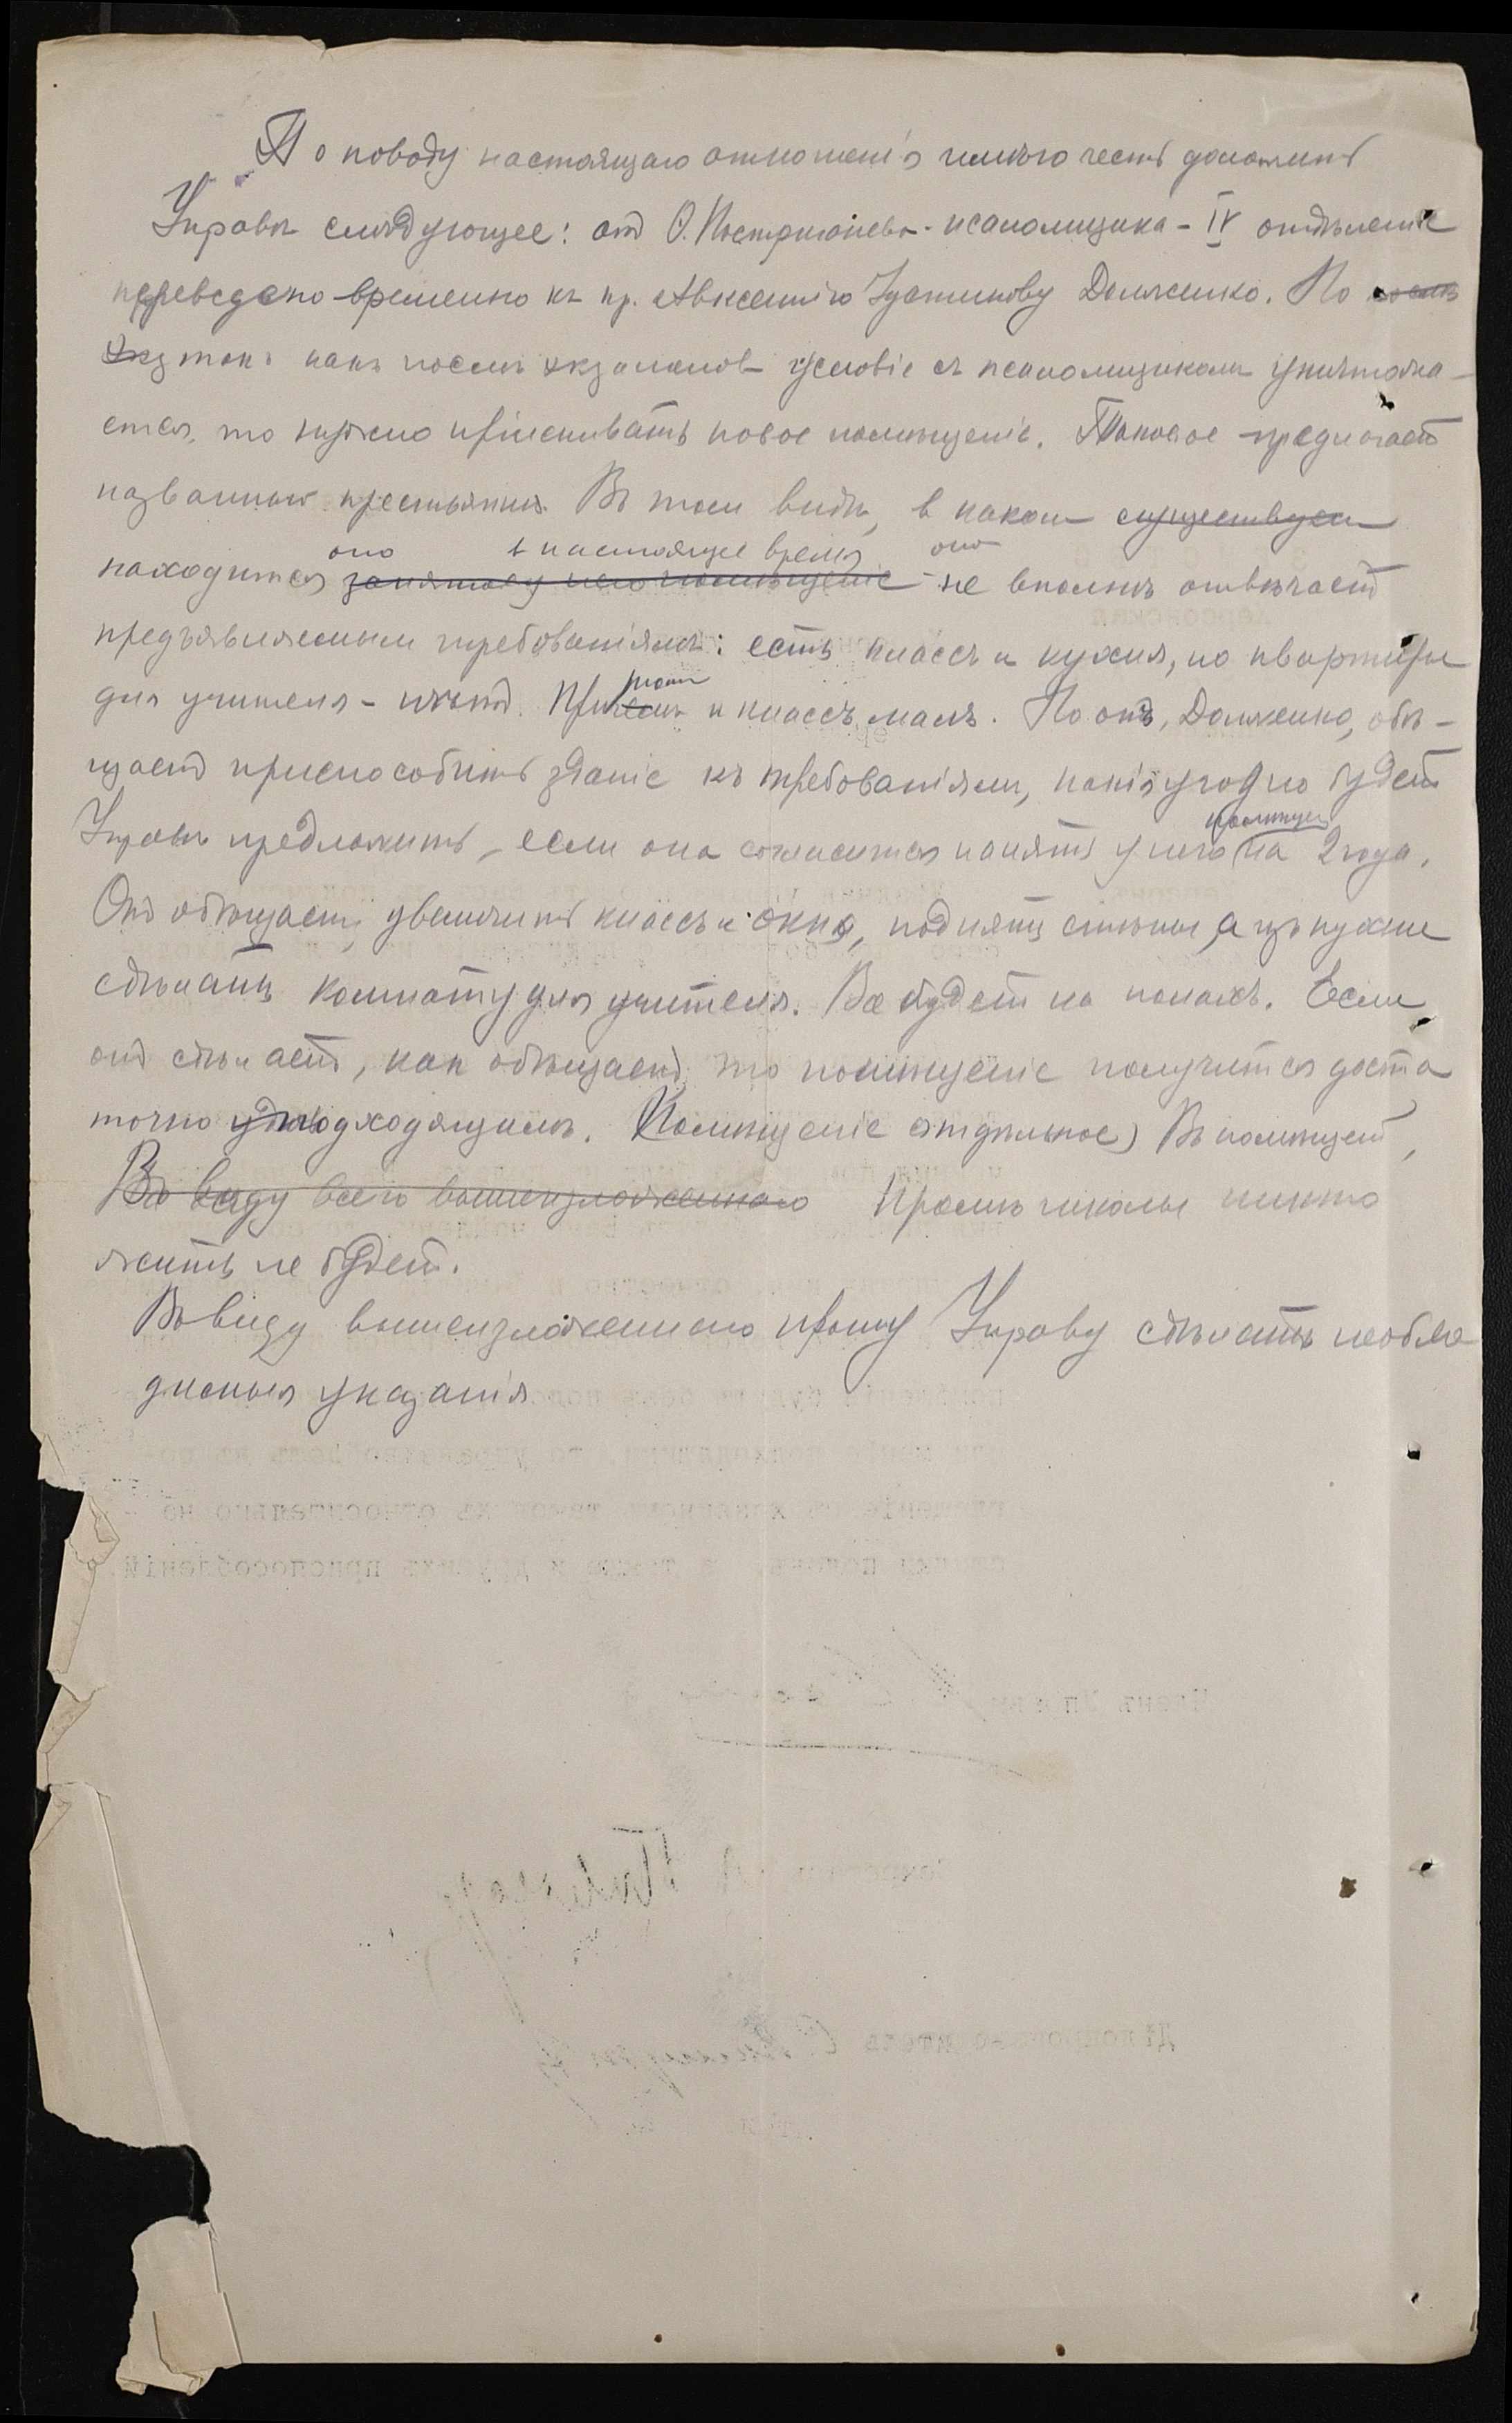 По поводу настоящаго отношенія имѣю честь доложить
Управѣ слѣдующее: отъ О. псаломщика - IV отдѣленіе
переведено временно къ кр. Авксентію Устинову Долженко. Но послѣ
экз такъ какъ послѣ экзаменов условіе съ псаломщикомъ уничтожа-
ется, то нужно пріискивать новое помѣщеніе. Таковое предлагаетъ
названный крестьянин. Въ том видѣ, в каком существует
оно в настоящее время оно
находится занятое у него помѣщеніе не вполнѣ отвѣчаетъ
предъявляемым требованіямъ: есть классъ и кухня, но квартиры
том
для учителя - нѣтъ. При и классъ малъ. Но онъ, Долженко, обѣ-
щаетъ приспособить зданіе къ требованіям, какія угодно будет
помѣщен
Управѣ предложить, если она согласится нанять у него на 2 года.
Онъ обѣщаетъ увеличить классъ и окна, поднять стѣны, а изъ кухни
сдѣлать комнату для учителя. Все будет на полахъ. Если
онъ сдѣлаетъ, как обѣщаетъ, то помѣщеніе получится доста
точно подходящимъ. (Помѣщеніе отдѣльное) Въ помѣщеніи,
Въ виду всего вышеизложеннаго кромѣ школы никто
жить не будет.
Въ виду вышеизложеннаго прошу Управу сдѣлать необхо
димыя указанія